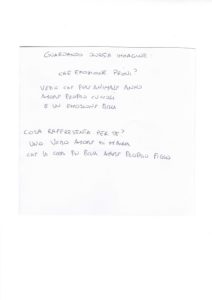 GUARDANDO QUESTA IMMAGINE
CHE EMOZIONE PROVI?
VEDO CHE PURE ANIMALI ANNO
AMORE PROPRIO CUCCIOLI
E UN EMOZIONE BELLA
COSA RAPPRESENTA PER TE?
UNO VERO AMORE DI MAMMA
CHE LA COSA PIU BELLA AMARE PROPRIO FIGLIO